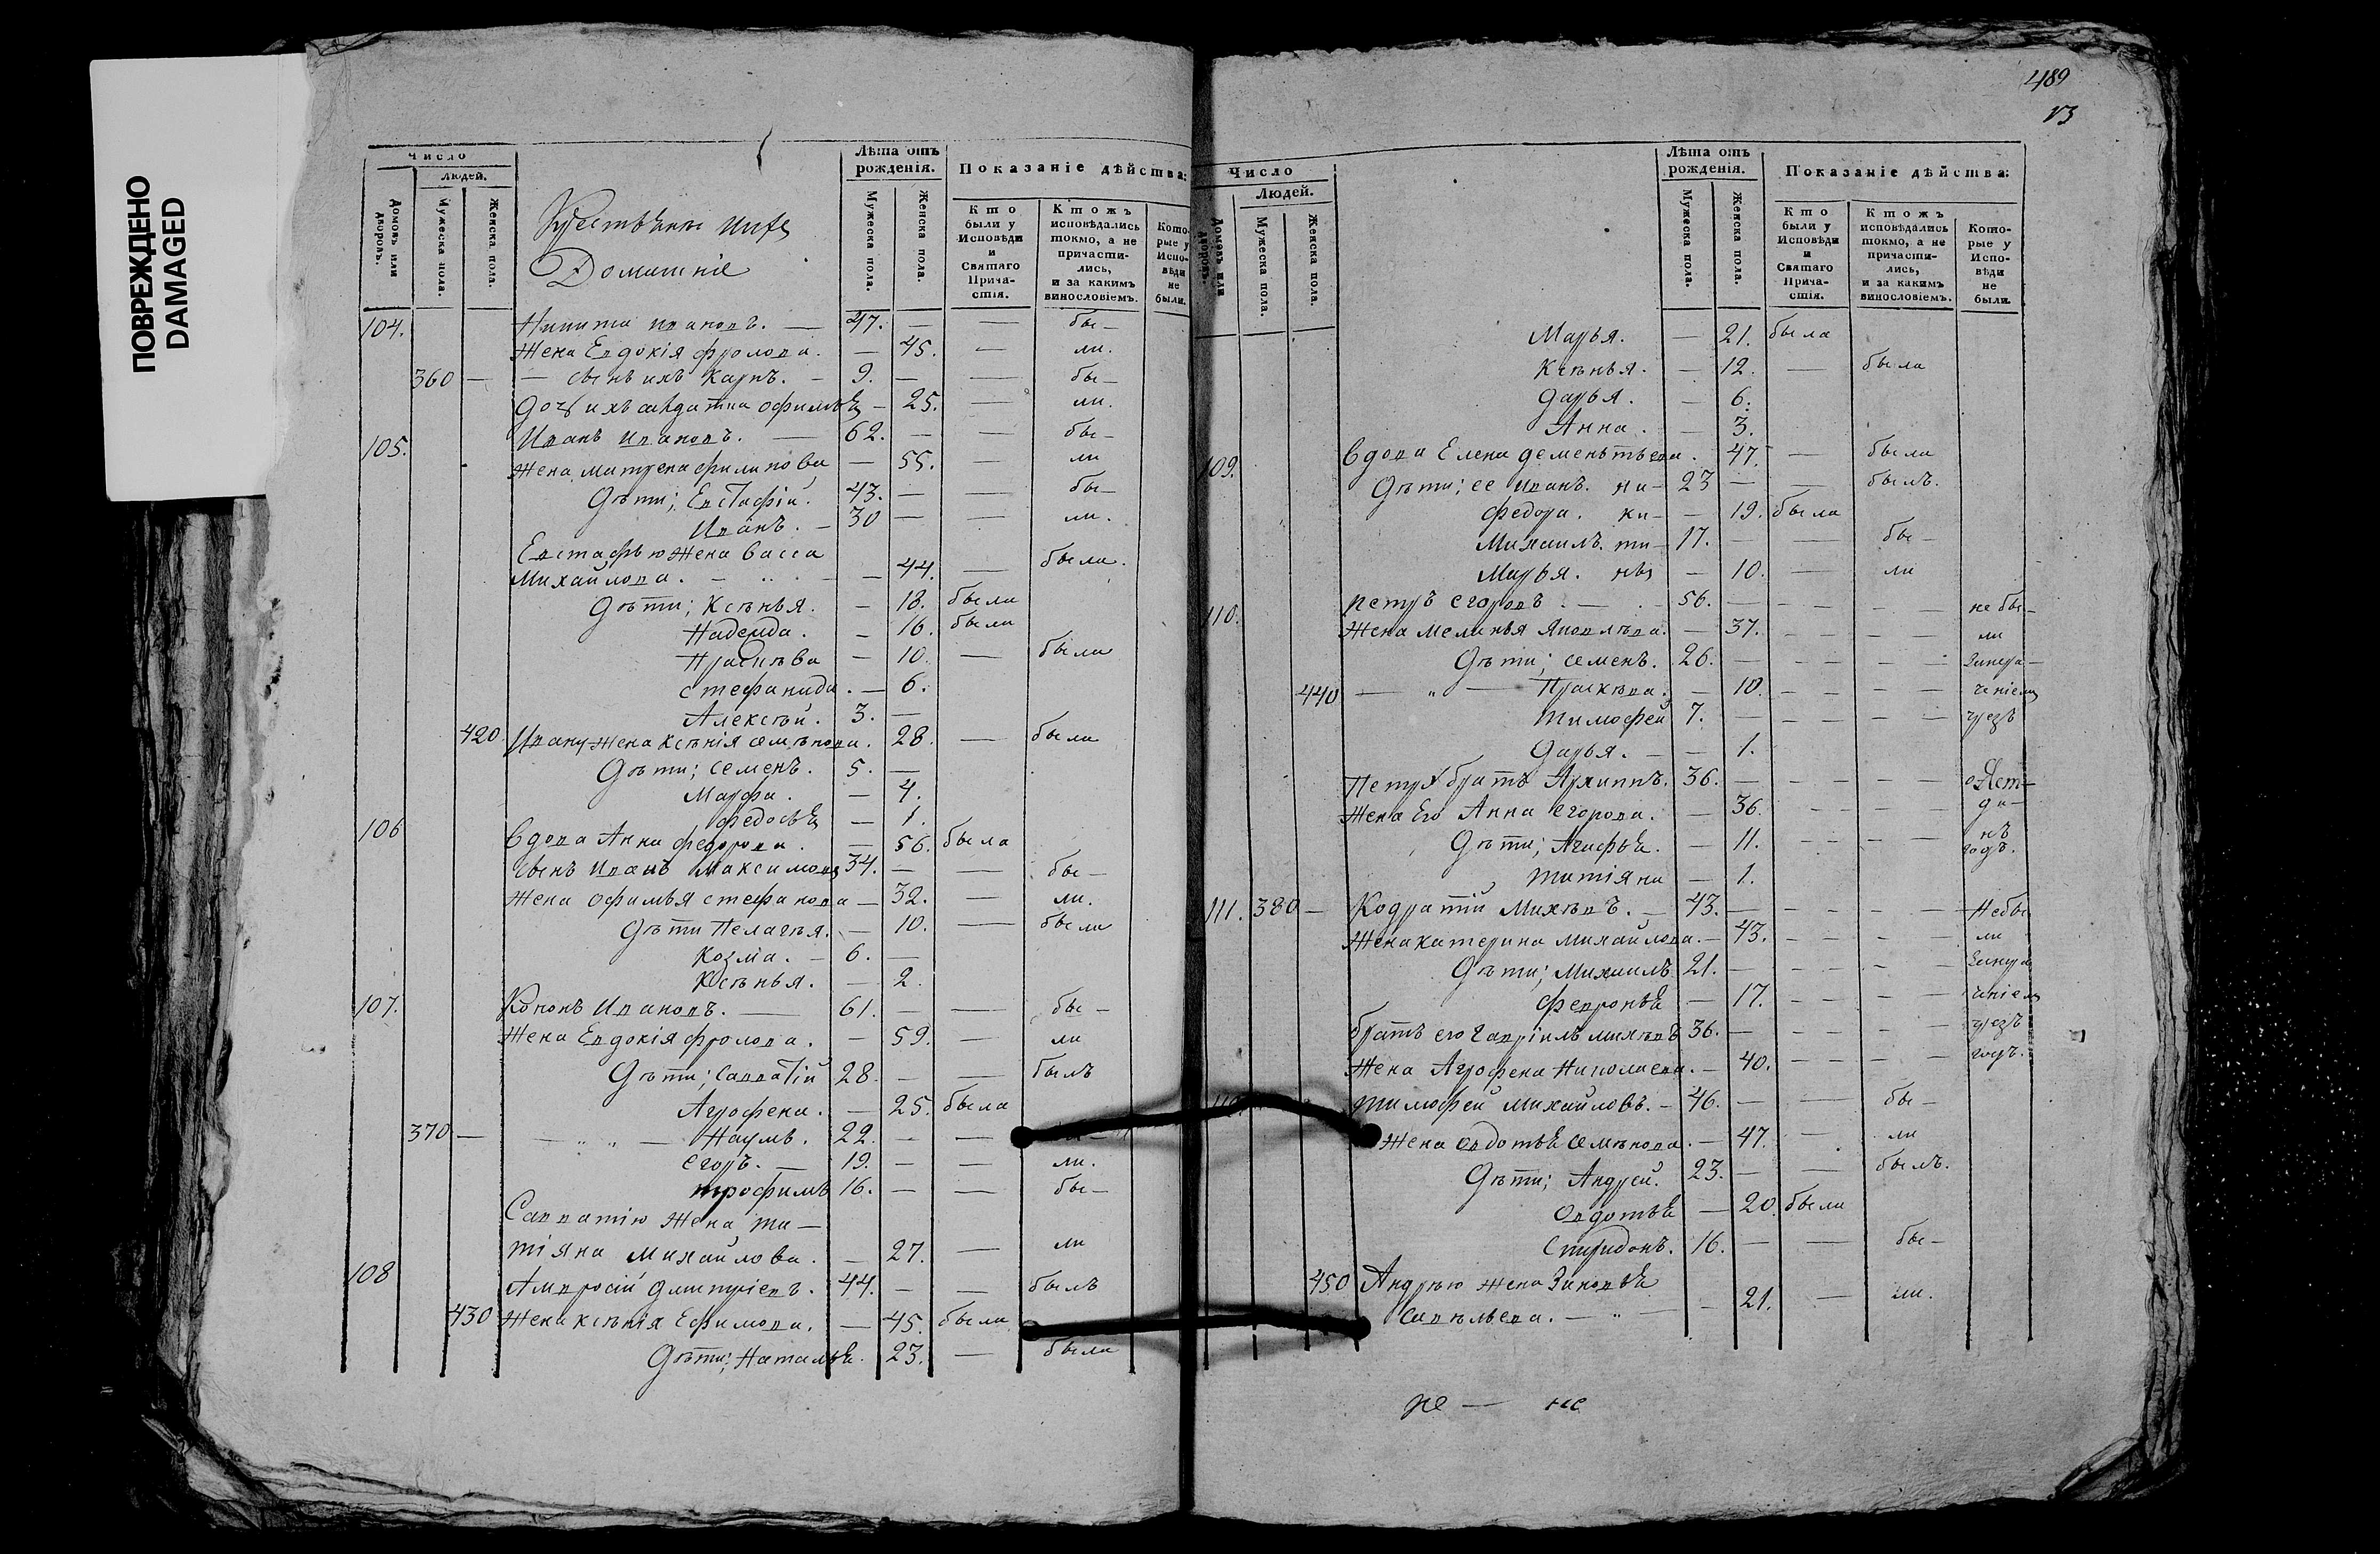 ПОВРЕЖДЕНО
DAMAGED
Число
Людей.
Домовъ или дворовъ.
Мужеска пола.
Женска пола.
Крестьяне ихъ
Домашніе
Лѣта отъ рожденія.
Мужеска пола.
Женска пола.
Показаніе дѣйства:
Кто были у Исповѣди и Святаго Причастія.
Ктожъ исповѣдались токмо, а не причастились, и за какимъ винословіемъ.
Которые у Исповѣди не были.
104. Никита Ивановъ. — 47. — — бы—
Жена Евдокія Фролова. — 45. — ли.
360 — — сынъ ихъ Карпъ. — 9. — — бы—
дочь ихъ солдатка Офимья — 25. — ли.
105. Иванъ Ивановъ. — 62. — — бы—
Жена Матрена Филипова — 55. — ли
Дѣти; Евстафій. 43. — — бы—
Иванъ. — 30 — — ли.
Евстафью Жена Васса
Михайлова. — — 44. — была.
Дѣти; Ксѣнья. — 18. была
Надежда. — 16. была
Прасковья — 10. — была
Стефанида. — 6.
Алексѣй. 3. —
420 Ивану Жена Ксѣнія Семѣнова. 28. — была
Дѣти; Семенъ. 5. —
Марфа. — 4.
Федосья — 1.
106 Вдова Анна Федорова. — 56. была
сынъ Иванъ Максимовъ 34. — — бы—
Жена Офимья Стефанова — 32. — ли.
Дѣти Пелагѣя. — 10. — была
Козма. — 6. —
Ксѣнья. — 2.
107. Кононъ Ивановъ. — 61. — — бы—
Жена Евдокія Фролова. — 59. — ли
Дѣти; Савватій 28. — — былъ
Агрофена. — 25. была
370 — — Наумъ. 22. — —
Егоръ. — 19. — — ли.
Трофимъ 16. — — бы—
Савватію Жена Та—
тіяна Михайлова. — 27. — ли
108 Амвросій Дмитріевъ. 44. — — былъ
430 Жена Ксѣнія Ефимова. — 45. была
Дѣти; Наталья. 23. — была
489
13
Число
Людей.
Домовъ или дворовъ.
Мужеска пола.
Женска пола.
Лѣта отъ рожденія.
Мужеска пола.
Женска пола.
Показаніе дѣйства:
Кто были у Исповѣди и Святаго Причастія.
Ктожъ исповѣдались токмо, а не причастились, и за какимъ винословіемъ.
Которые у Исповѣди не были.
Марья. — 21. была
Ксѣнья. — 12. — была
Дарья. — 6.
Анна. — 3.
109. Вдова Елена Дементьева. 47. — была
Дѣти; ее Иванъ. 23 — — былъ.
Федора. — 19. была
Михаилъ. 17. — — бы—
Марья. — 10. — ли
110. Петръ Егоровъ. — 56. — — — — не бы—
Жена Меланья Яковлева. — 37. — — — ли
Дѣти; Семенъ. 26. — — — —
440 — — Прасковья. — 10. — — —
Тимофей 7. — — — — чрезъ
Дарья. — — 1.
Петру братъ Архиппъ. 36. — — — —
Жена Его Анна Егорова. — 36. — — —
Дѣти; Агафья. — 11. — — — годъ.
Татіяна — 1.
111. 380 — Кодратій Михѣевъ. — 43. — — — — Не бы
Жена Катерина Михайлова. — 43. — — — ли
Дѣти; Михаилъ 21. — — — —
Февронья — 17. — — —
братъ его Гавріилъ Михѣевъ 36. — — — — чрезъ
Жена Агрофена Николаева. — 40. — — — годъ.
Тимофей Михайловъ. — 46. — — бы—
Жена Овдотья Семѣнова. — 47. — ли
Дѣти; Андрей. 23. — — былъ.
Овдотья — 20. была
Спиридонъ. 16. — — бы—
450 Андрѣю Жена Зиновья
Савельева. — — 21. — ли.